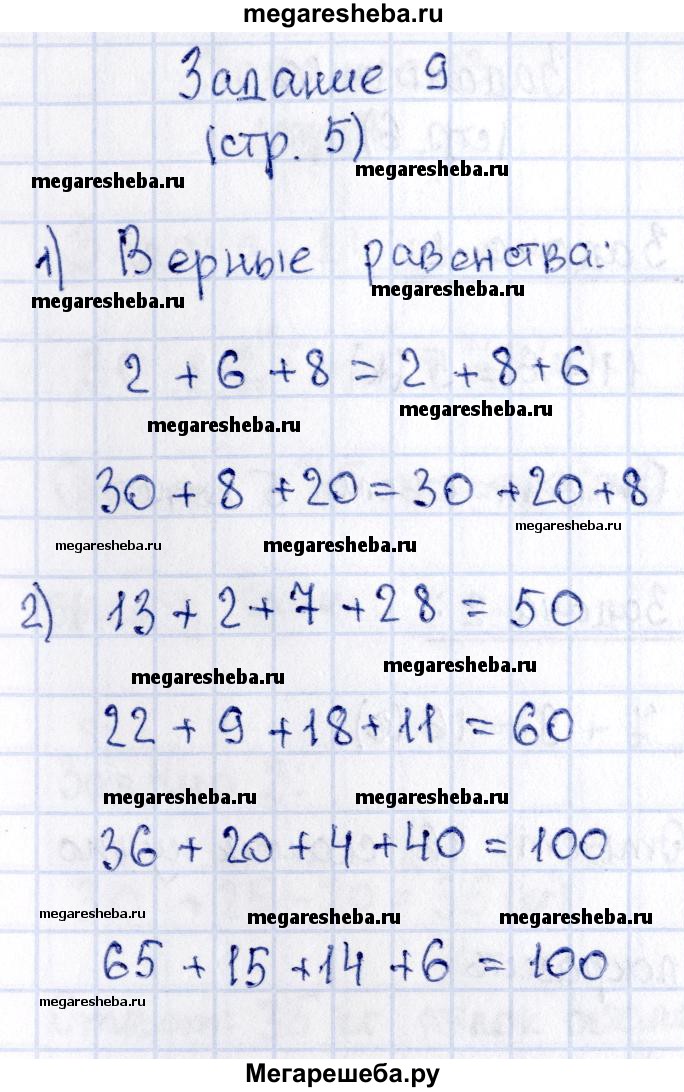 megaresheba.ru
Задание 9
(стр. 5)
megaresheba.ru
megaresheba.ru
1) Верные равенства:
megaresheba.ru
megaresheba.ru
2 + 6 + 8 = 2 + 8 + 6
megaresheba.ru
megaresheba.ru
30 + 8 + 20 = 30 + 20 + 8
megaresheba.ru
megaresheba.ru
megaresheba.ru
2) 13 + 2 + 7 + 28 = 50
megaresheba.ru
megaresheba.ru
22 + 9 + 18 + 11 = 60
megaresheba.ru
megaresheba.ru
36 + 20 + 4 + 40 = 100
megaresheba.ru
megaresheba.ru
megaresheba.ru
65 + 15 + 14 + 6 = 100
megaresheba.ru
Мегарешеба.ру